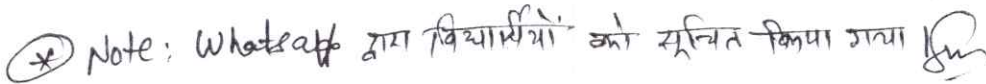 * Note: Whatsapp द्वारा विद्यार्थियों को सूचित किया गया